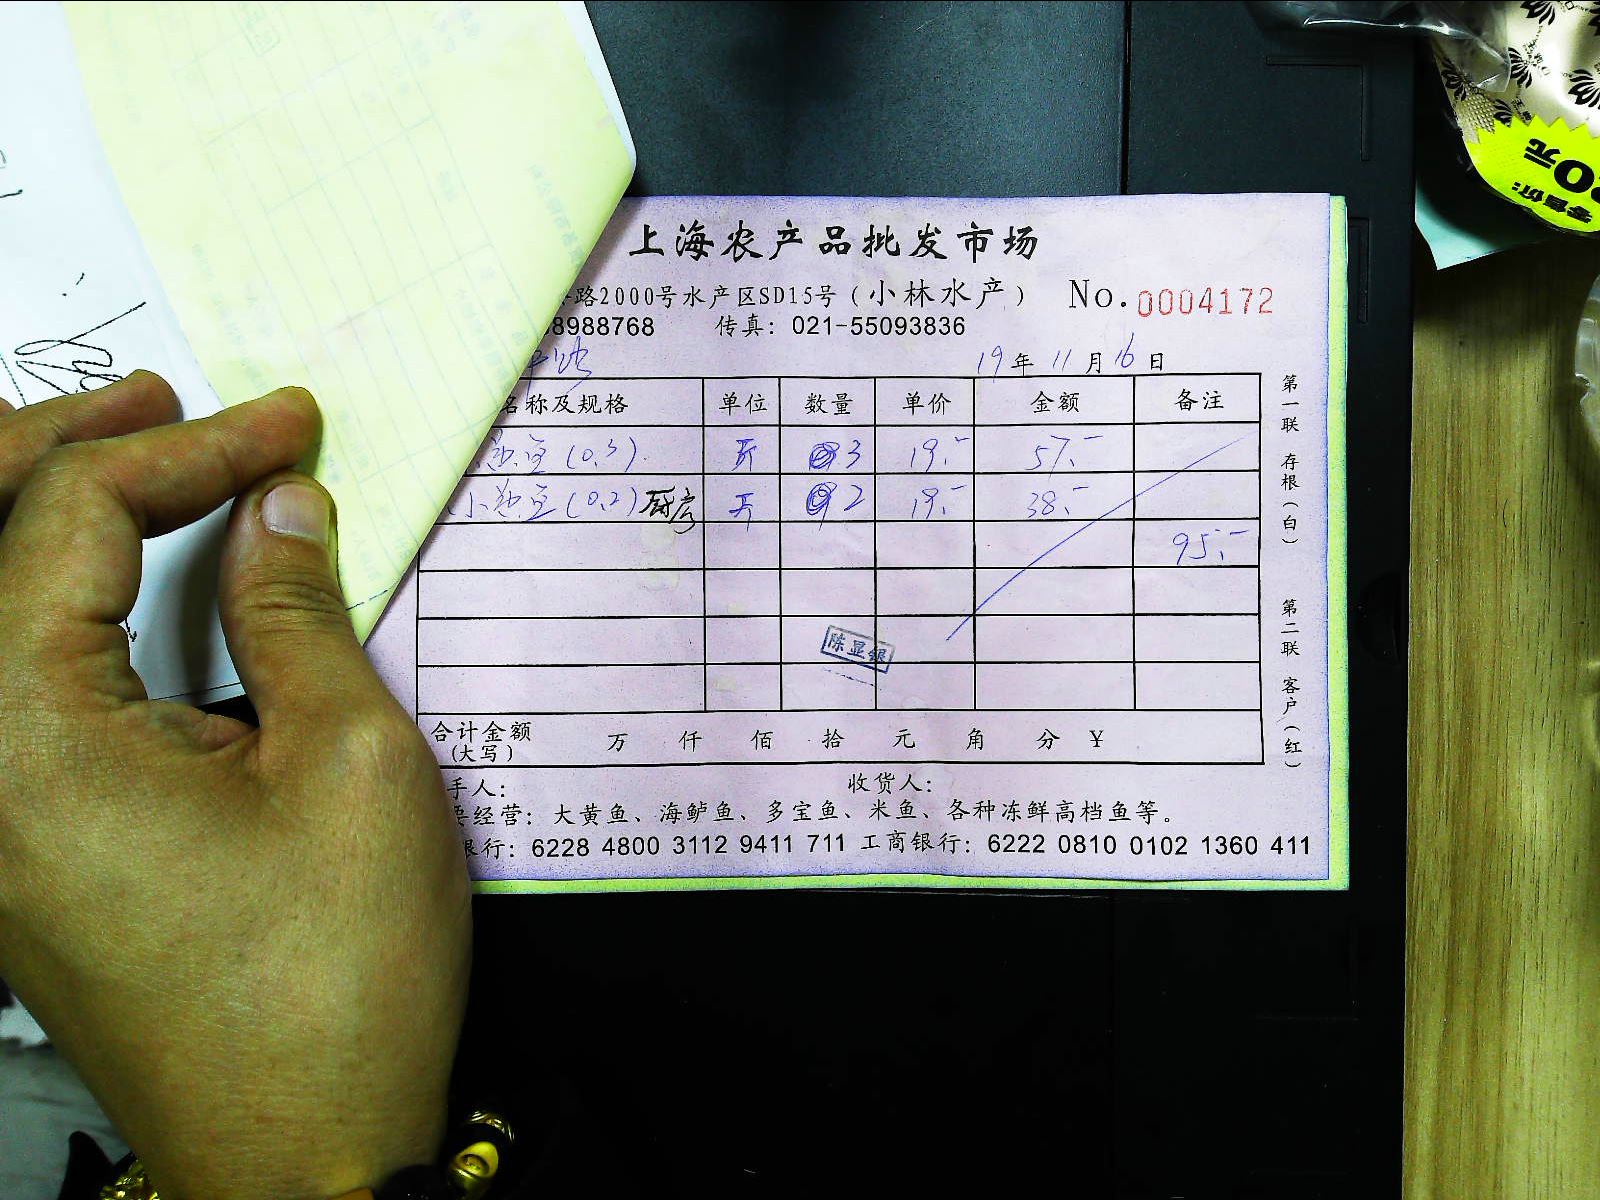 上海农产品批发市场
路2000号水产区SD15号（小林水产） No.0004172
8988768 传真：021-55093836
19年11月16日
名称及规格 单位 数量 单价 金额 备注
(0.3) 斤 3 19.- 57.-
小 (0.2) 厨房 斤 2 19.- 38.-
95.-
陈显银
合计金额 万 仟 佰 拾 元 角 分 ¥
(大写)
手人： 收货人：
要经营：大黄鱼、海鲈鱼、多宝鱼、米鱼、各种冻鲜高档鱼等。
银行：6228 4800 3112 9411 711 工商银行：6222 0810 0102 1360 411
第一联 存根（白） 第二联 客户（红）
零售价：
0元